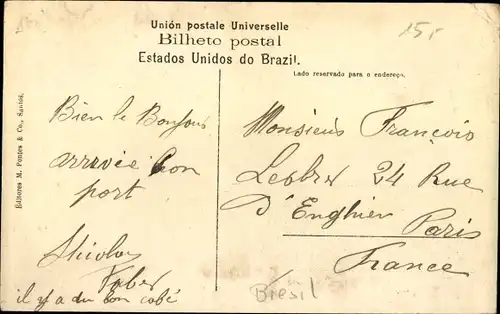 Unión postale Universelle
Bilheto postal
Estados Unidos do Brazil.
15
Lado reservado para o endereço.
Editores M. Pontes & Co., Santos.
Bien le Bonjour
arrivée bon
port
il y a du bon café
Monsieur François
24 Rue
d'Enghien Paris
France
Brésil